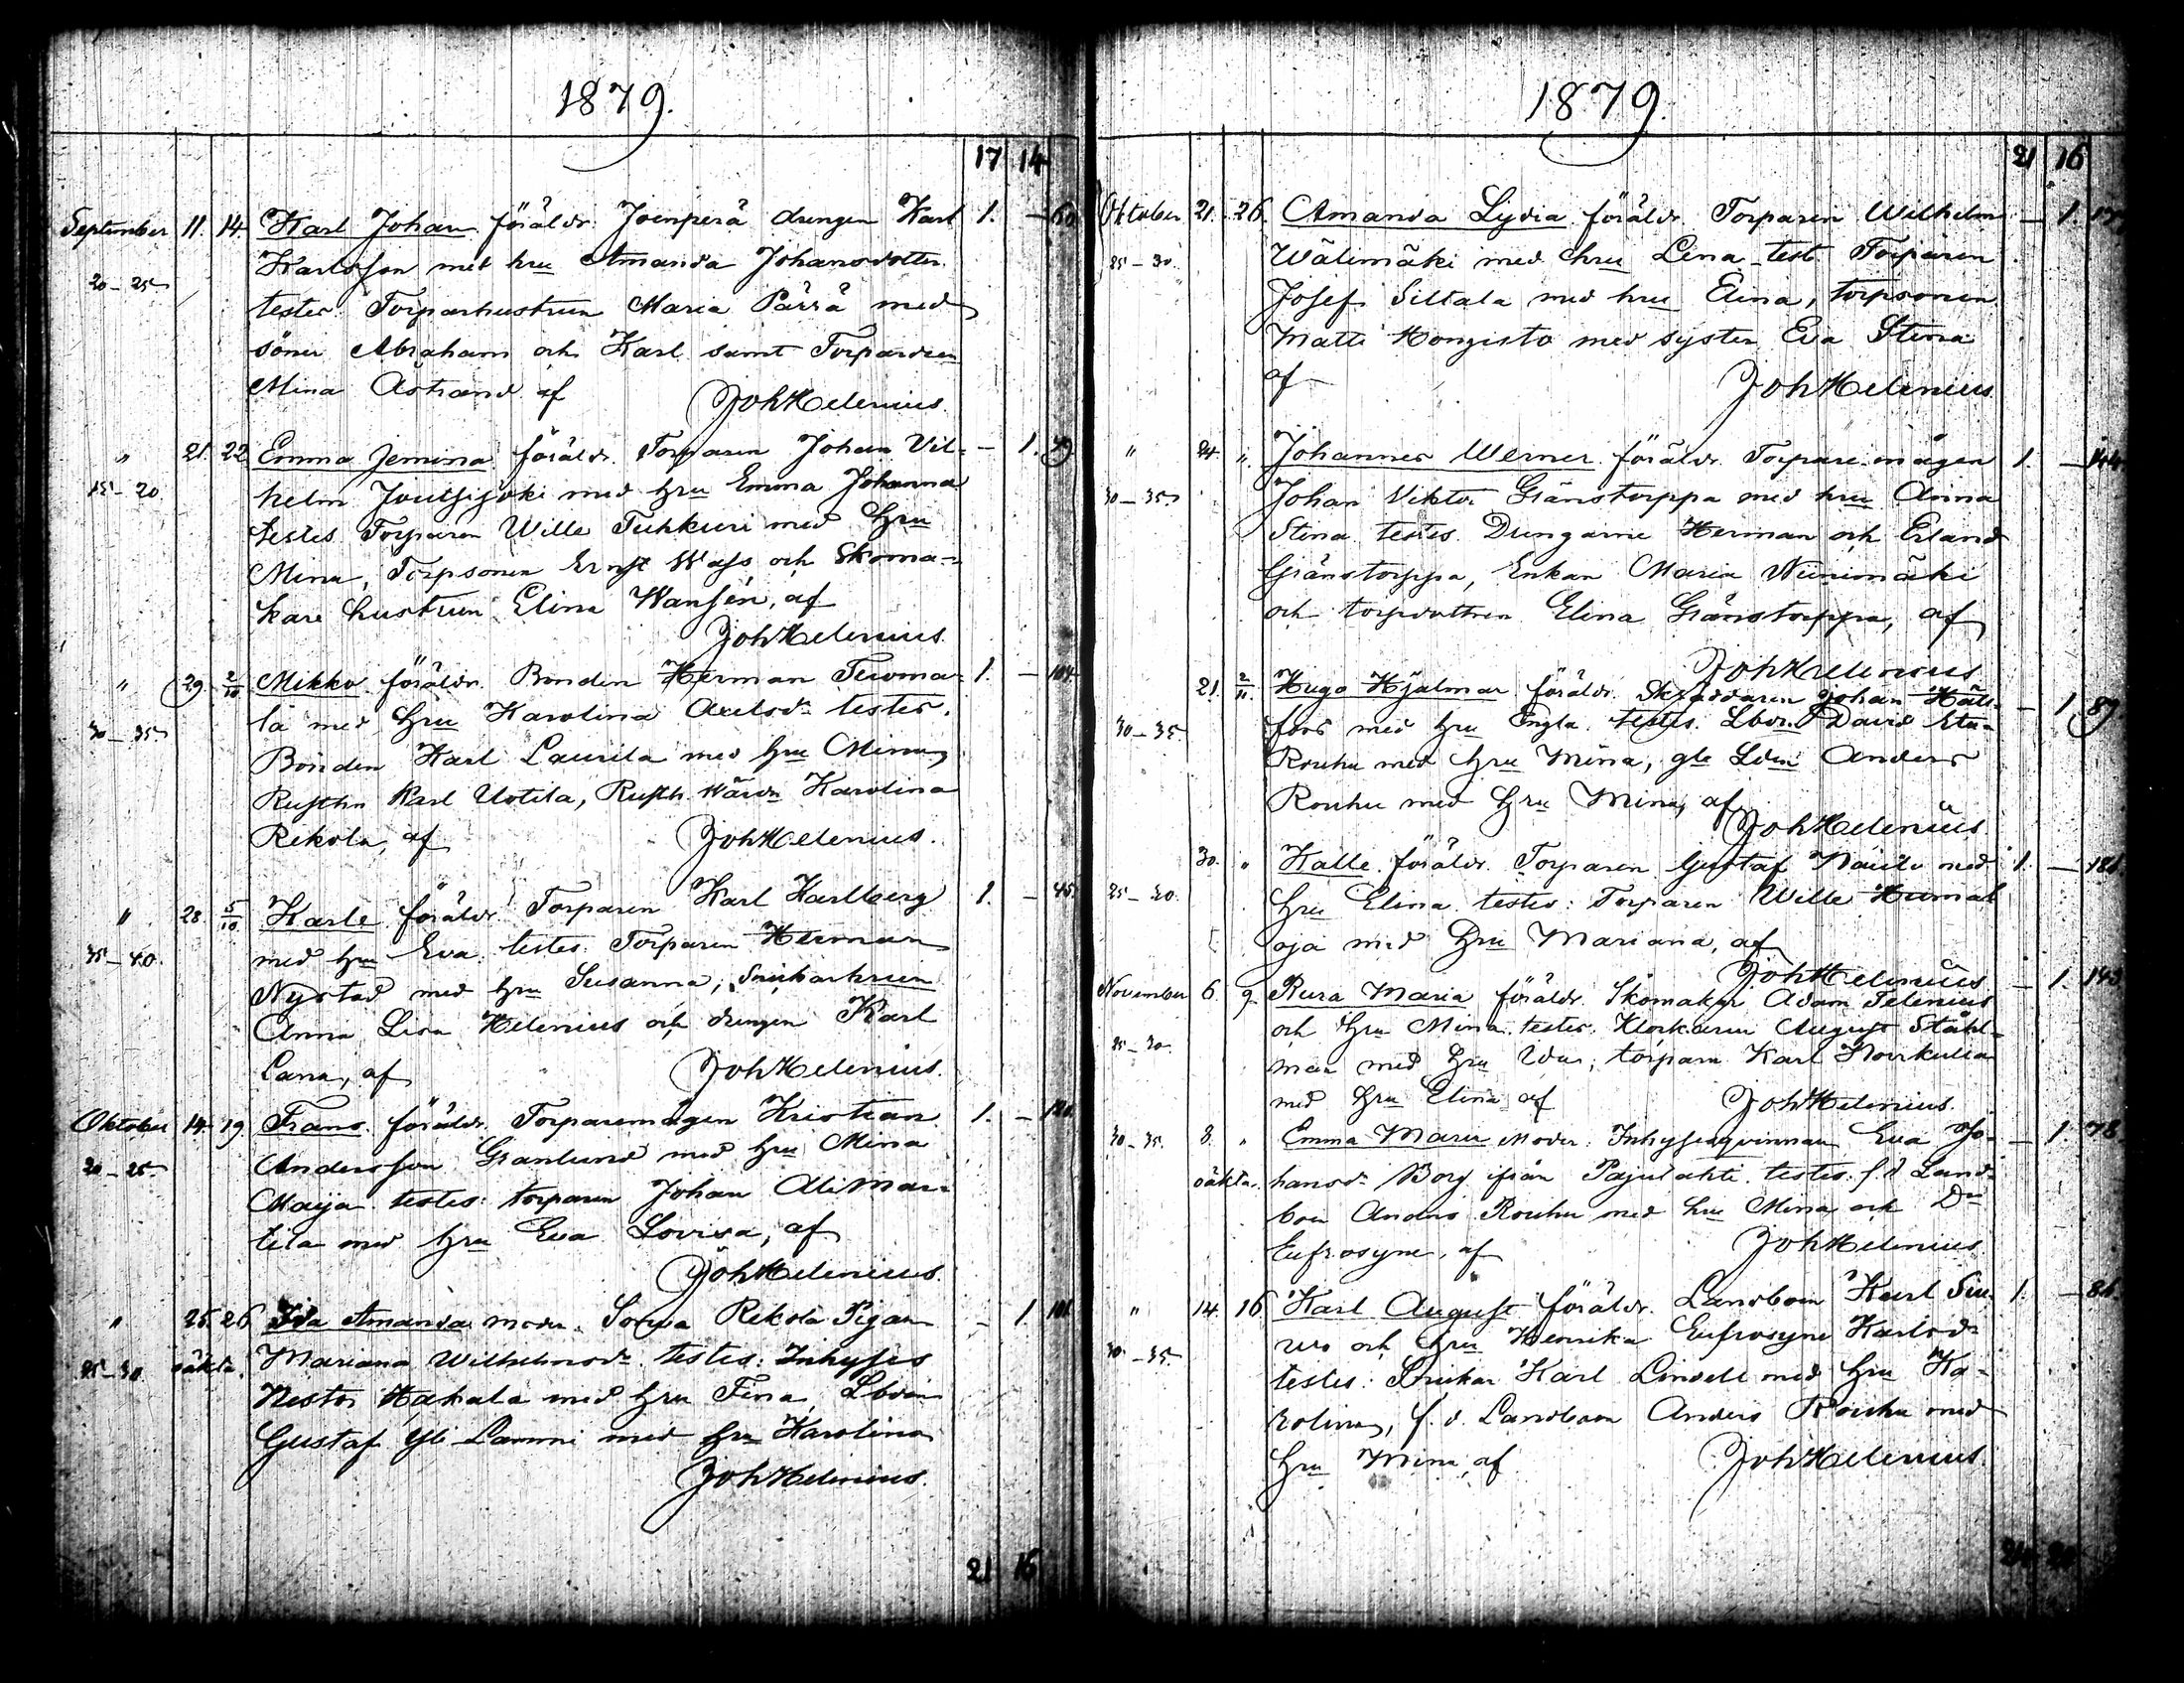 1879.
17 14
September 11. 14. Karl Johan föräldr. Joenperä drengen Karl 1. — 60
Karlsson med hru Amanda Johansdotter.
20–25
testes: Torparhustrun Maria Pärrä med
söner Abraham och Karl samt Torpardren
Mina Åstrand af JohHelenius.
" 21. 22 Emma Jemina föräldr. Torparen Johan Vil- — 1. 49
15–20. helm med hru Emma Johanna
testes Torparen Wille Tuhkuri med hru
Mina, Torpsonen Ernst Wass och Skoma-
kare hustrun Elina Wansén, af
JohHelenius.
" 29. 2/10 Mikko föräldr. Bonden Herman Teroma- 1. — 104
lä med hru Karolina Axelsdr testes.
30–35
Bonden Karl Laurila med hru Mina,
Rusthn Karl Uotila, Rusth. värdn Karolina
Rekola, af JohHelenius.
" 28. 5/10 Karle föräldr. Torparen Karl Karlberg 1. — 45
35–40. med hru Eva testes: Torparen Herman
Nystad med hru Susanna, Snickarhrun
Anna Lisa Helenius och drengen Karl
Lana, af JohHelenius.
Oktober 14. 19. Frans. föräldr. Torparemågen Kristian 1. — 120.
20–25 Andersson Granlund med hru Mina
Maija testes: torparen Johan Ali Mar-
tila med hru Eva Lovisa, af
JohHelenius.
" 25. 26 Ida Amanda moder. Sorwa Rekola Pigan — 1 101
25–30 oäkta. Mariana Wilhelmsdr testes: Inhyses
Nestor Hakala med hru Fina, Lbdn
Gustaf Yli Lammi med hru Karolina
JohHelenius.
21 16
1879.
21 16
Oktober 21. 26. Amanda Lydia föräldr. Torparen Wilhelm — 1.
25–30. Wälimäki med hru Lena test Torparen
Josef Siltala med hru Elina, torpsonen
Matti Hongisto med syster Eva Stina
af JohHelenius.
" 24. ". Johannes Werner föräldr. Torpare mågen 1. — 144
30–35 Johan Viktor Gränstorppa med hru Anna
Stina testes. Drengarne Herman och Erland
Gränstorppa, Enkan Maria Niinimäki
och torpdottren Elina Gränstorppa, af
JohHelenius
21. 2/11. Hugo Hjalmar föräldr. Skräddaren Johan Häll- — 1 89
30–35. fors med hru Engla. testes. Lbdn David Eta-
Rouhu med hru Mina, gle Lbdn Anders
Rouhu med hru Mina, af
JohHelenius
30. " Kalle föräldr. Torparen Gustaf med 1. —
25–30. hru Elina testes: Torparen Wille Humal
oja med hru Mariana, af
JohHelenius
November 6. 9. Rura Maria föräldr. Skomakar Adam Selenius — 1. 143
och hru Mina testes. Klockaren August Ståhl-
25–30.
man med hru Ida, torparn Karl Koivkulia
med hru Elina af JohHelenius.
30–35. 8. " Emma Maria Moder: Inhysesqvinnan Eva Jo- — 1. 78
oäkta. hansdr Borg från Pajulahti testes: f.d Land-
boen Anders Rouhu med hru Mina och Dr
Eufrosyne, af JohHelenius
" 14. 16. Karl August föräldr. Landboen Karl Siu- 1. — 86
30–35. ro och hru Henrika Eufrosyne Karlsdr
testes: Snickar Karl Lindell med hru Ka-
rolina, f. d. Landboen Anders Rouhu med
hru Mina, af JohHelenius.